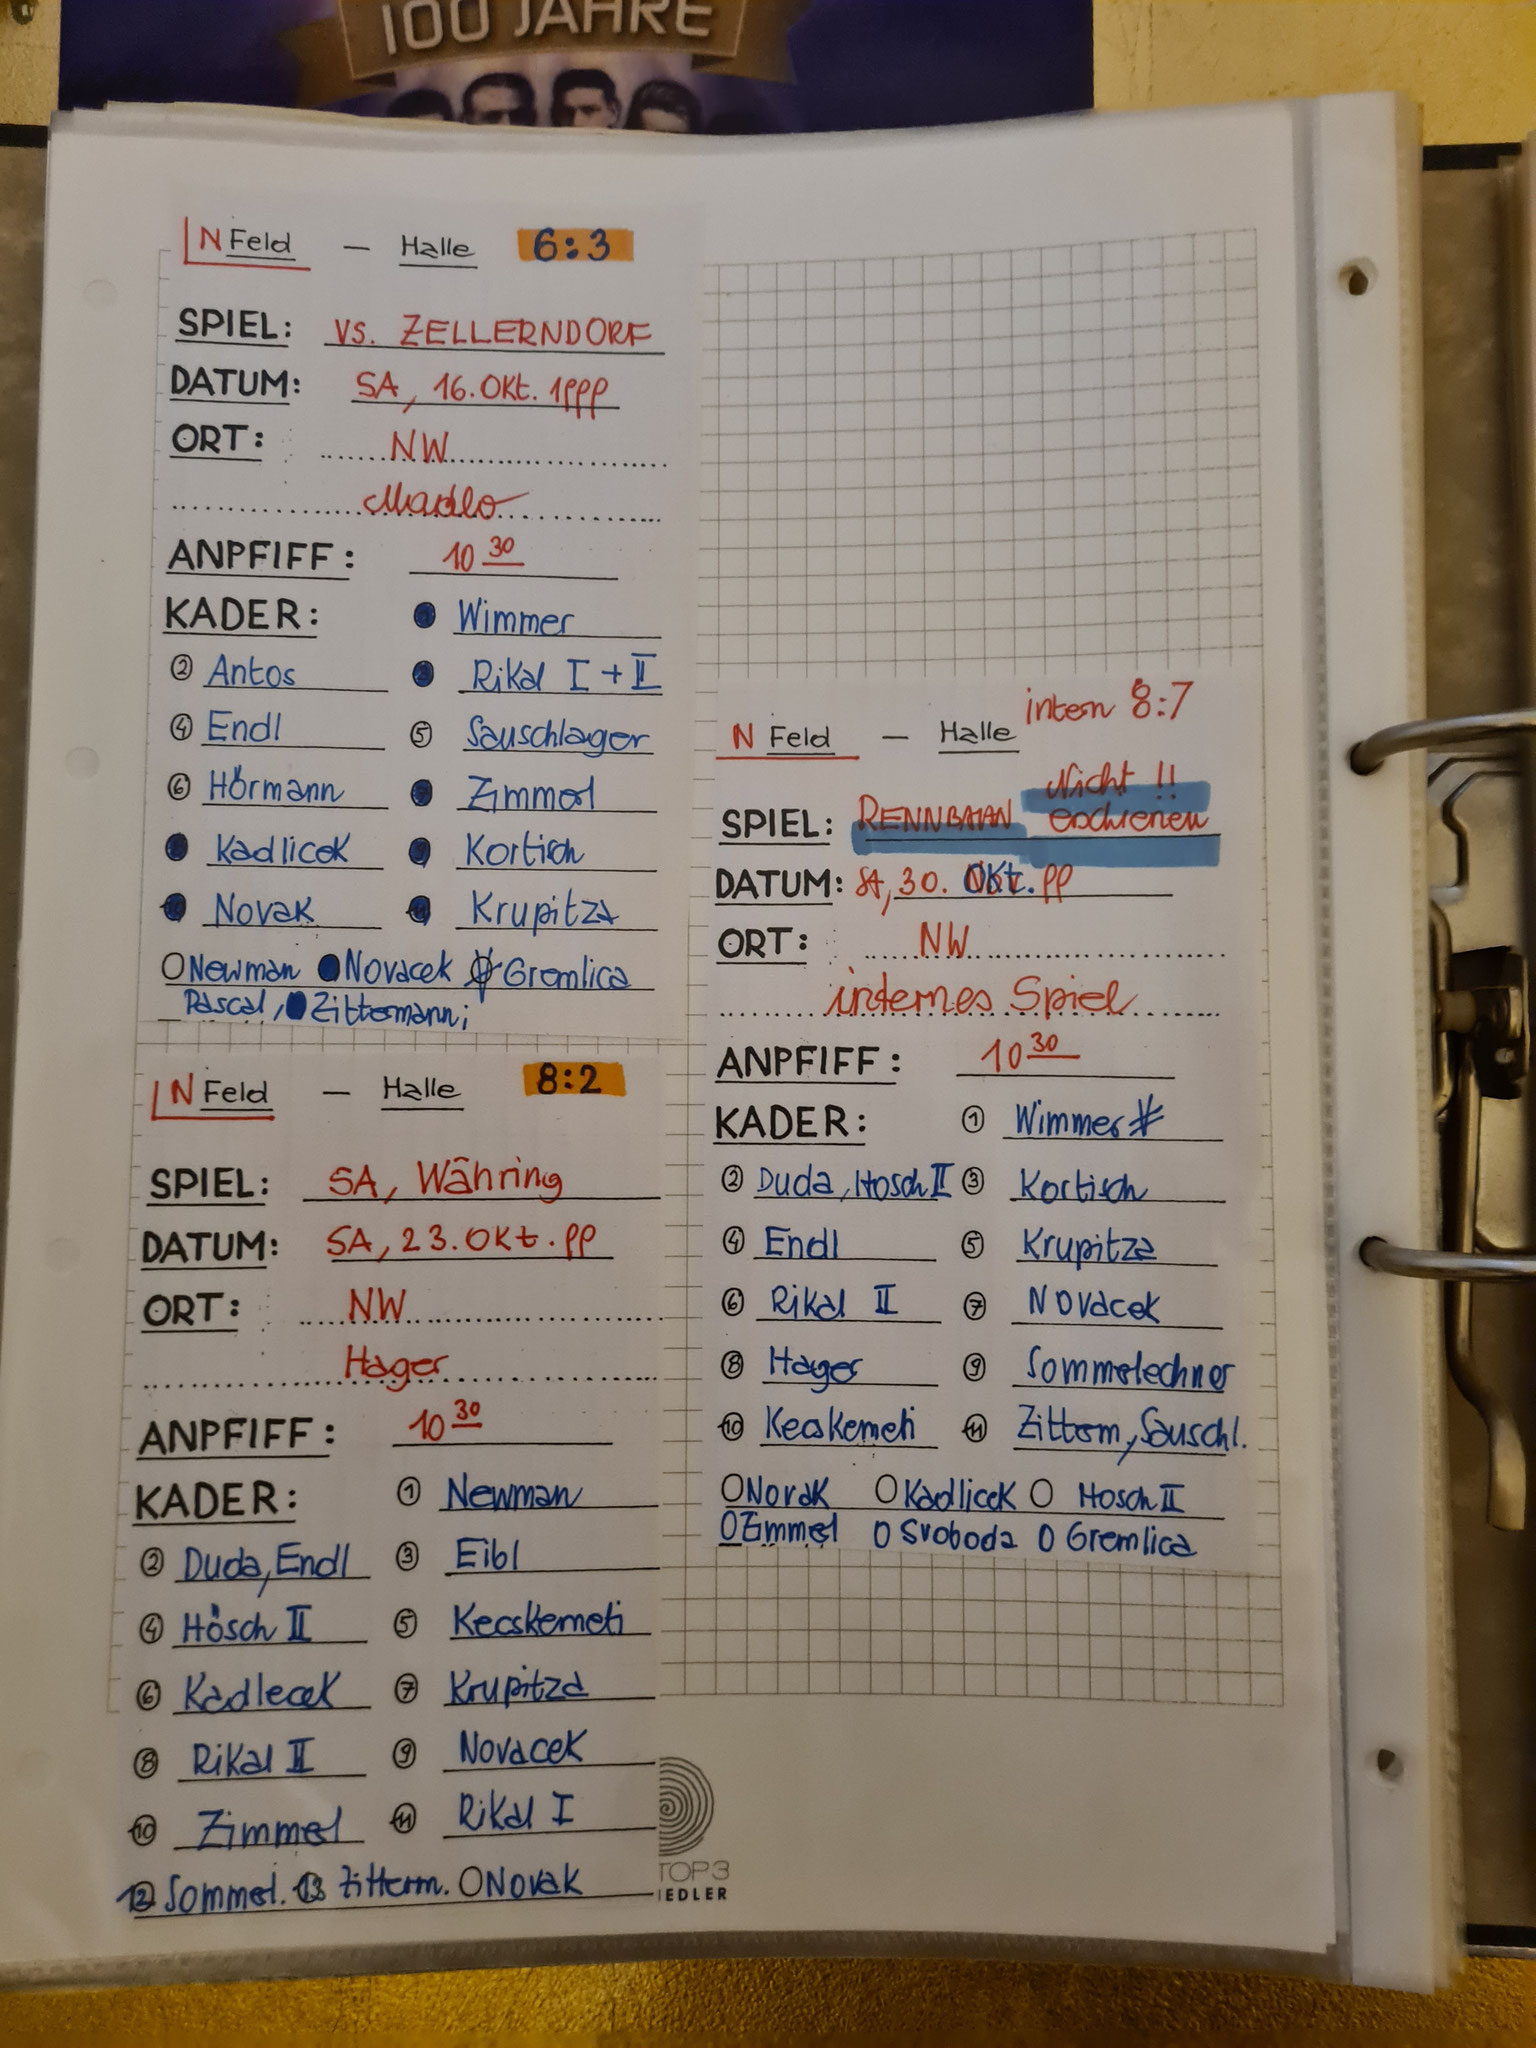 100 JAHRE
N Feld - Halle 6:3
SPIEL: vs. ZELLERNDORF
DATUM: SA, 16. OKt. 1999
ORT: NW
Madlo
ANPFIFF: 10 30
KADER: Wimmer
② Antos Rikal I + II
④ Endl ⑤ Sauschlager
⑥ Hörmann Zimmel
Kadlicek Kortisch
Novak Krupitza
Newman Novacek Gremlica
Pascal, Zittermann;
N Feld - Halle 8:2
SPIEL: SA, Währing
DATUM: SA, 23. OKt. 99
ORT: NW
Hager
ANPFIFF: 10 30
KADER: ① Newman
② Duda, Endl ③ Eibl
④ Hösch II ⑤ Kecskemeti
⑥ Kadlecek ⑦ Krupitza
⑧ Rikal II ⑨ Novacek
⑩ Zimmel ⑪ Rikal I
⑫ Sommel. 13 Zitterm. Novak
intern 8:7
N Feld - Halle
Nicht !!
SPIEL: RENNBAHN erschienen
DATUM: SA, 30. OKt. 99
ORT: NW
internes Spiel
ANPFIFF: 10 30
KADER: ① Wimmer
② Duda, Hosch II ③ Kortisch
④ Endl ⑤ Krupitza
⑥ Rikal II ⑦ Novacek
⑧ Hager ⑨ Sommelechner
⑩ Kecskemeti ⑪ Zitterm, Sauschl.
Novak Kadlicek Hosch II
Zimmel Svoboda Gremlica
TOP3
IEDLER